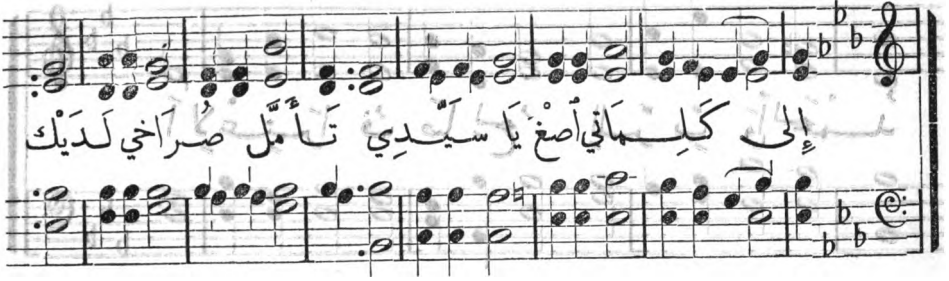 إِلى كَلِمَاتي أصْغَ يَا سَيِّدِي تَأَمَّل صُرَاخي لَدَيْك